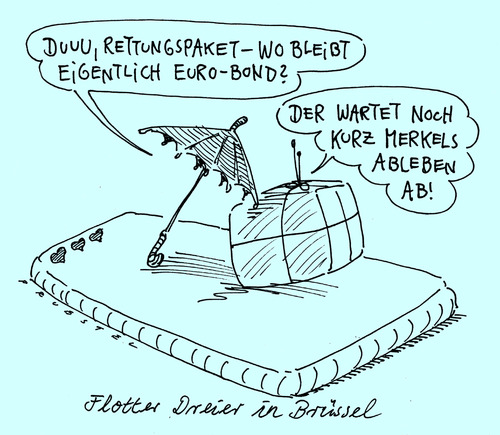 DUUU, RETTUNGSPAKET – WO BLEIBT
EIGENTLICH EURO-BOND?
DER WARTET NOCH
KURZ MERKELS
ABLEBEN
AB!
Flotter Dreier in Brüssel